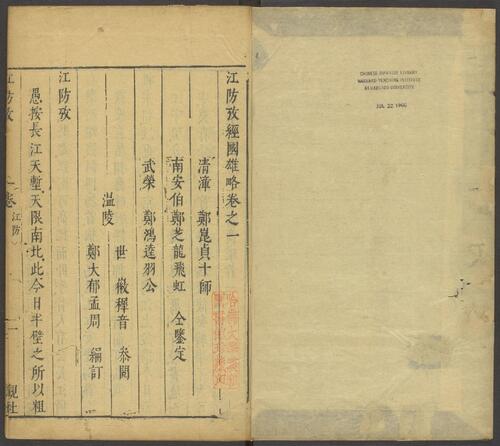 江防攷經國雄略卷之一
清漳 鄭崑貞十師
南安伯鄭芝龍飛虹 仝鑒定
武榮 鄭鴻逵羽公
世徽繹音 叅閱
溫陵
鄭大郁孟周 編訂
江防攷
愚按長江天塹天限南北此今日半壁之所以粗
江防攷 一卷 江防 一 觀社
CHINESE-JAPANESE LIBRARY
HARVARD-YENCHING INSTITUTE
AT HARVARD UNIVERSITY
JUL 22 1966